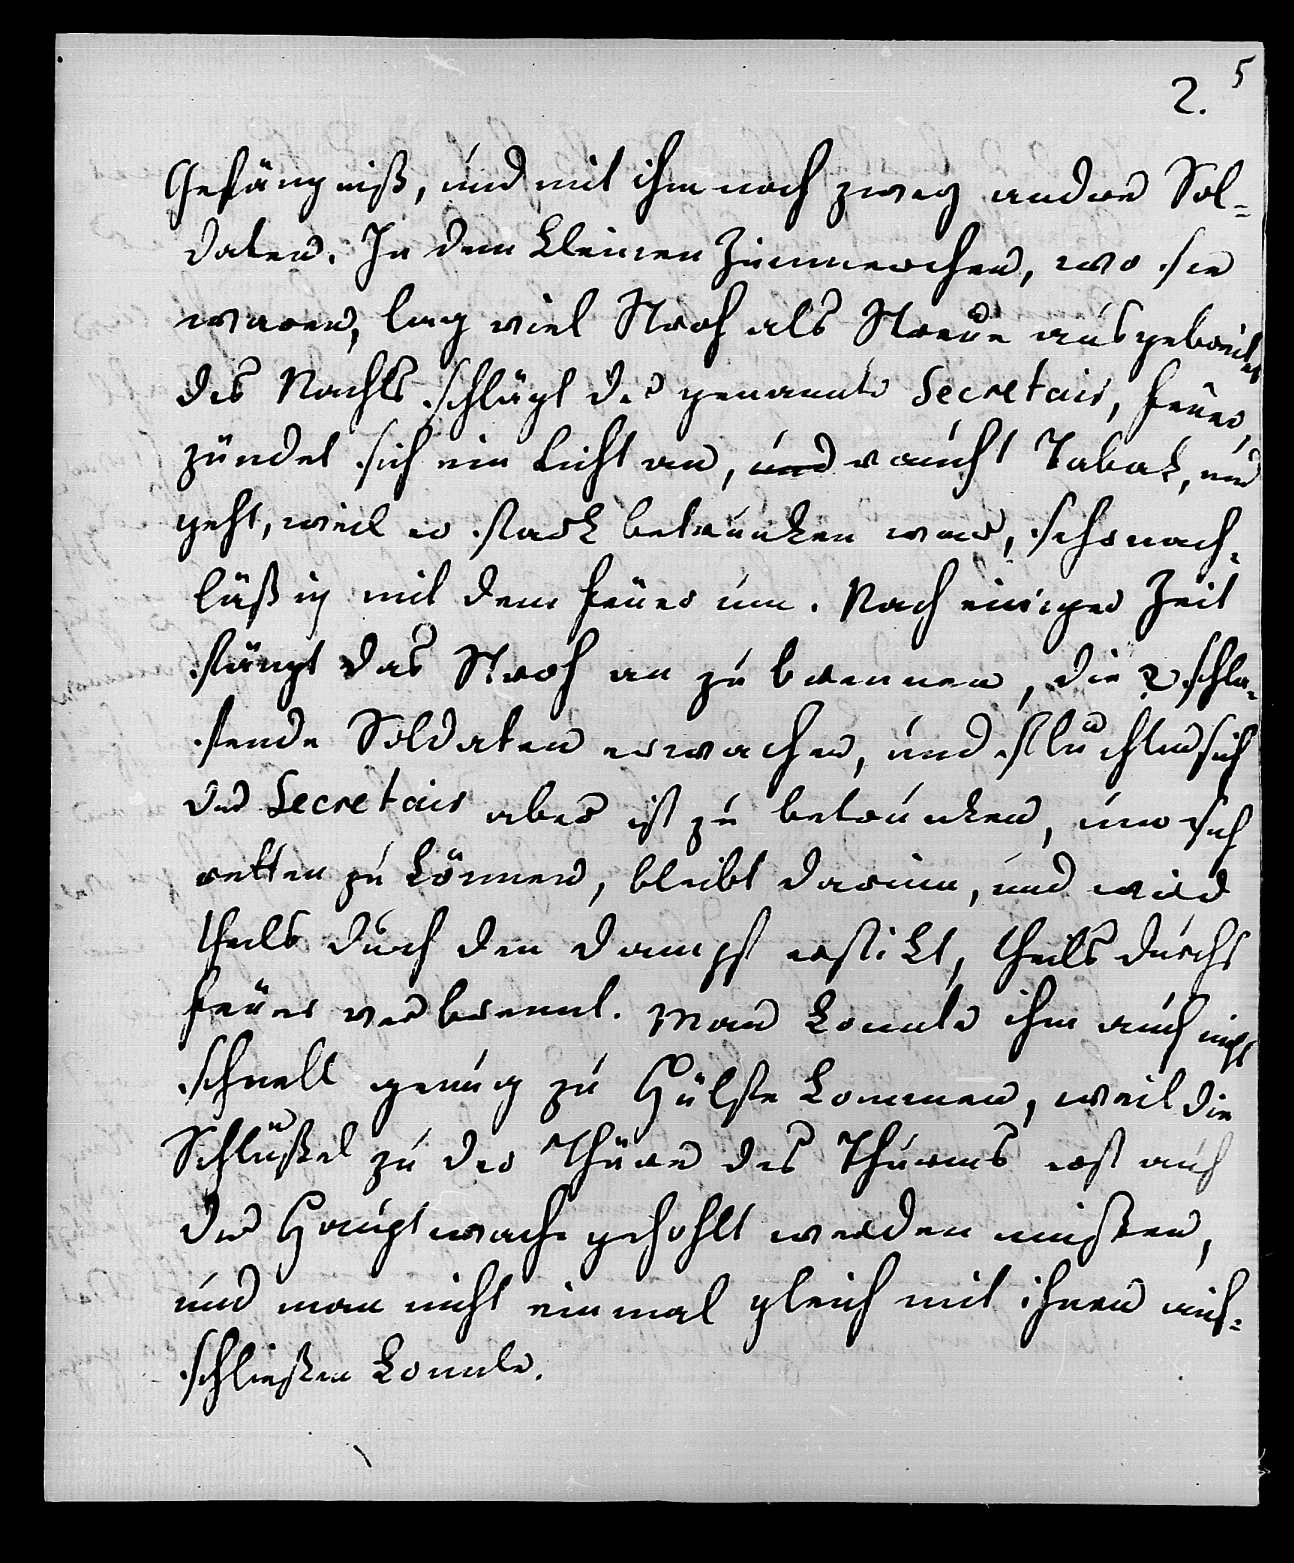 5
2.
Gefängniß, und mit ihm noch zwey andre Sol-
daten. In dem kleinen Zimmerchen, wo sie
waren, lag viel Stroh als Streue ausgebreitet
des Nachts schlägt der genannte Secretair, feuer,
zündet sich ein Licht an, und raucht Tabak, und
geht, weil er stark betrunken war, sehr nach-
läßig mit dem feuer um. Nach einiger Zeit
fängt das Stroh an zu brennen, die 2 schla-
fende Soldaten erwachen, und fluchten sich
der Secretair aber ist zu betrunken, um sich
retten zu können, bleibt darinn, und wird
theils durch den dampf erstikt, theils durchs
feuer verbrennt. Man konnte ihm auch nicht
schnell genug zu Hülfe kommen, weil die
Schlüßel zu der Thüre des Thurms erst auf
der Hauptwache gehohlt werden mußten,
und man nicht einmal gleich mit ihnen auf-
schließen konnte.